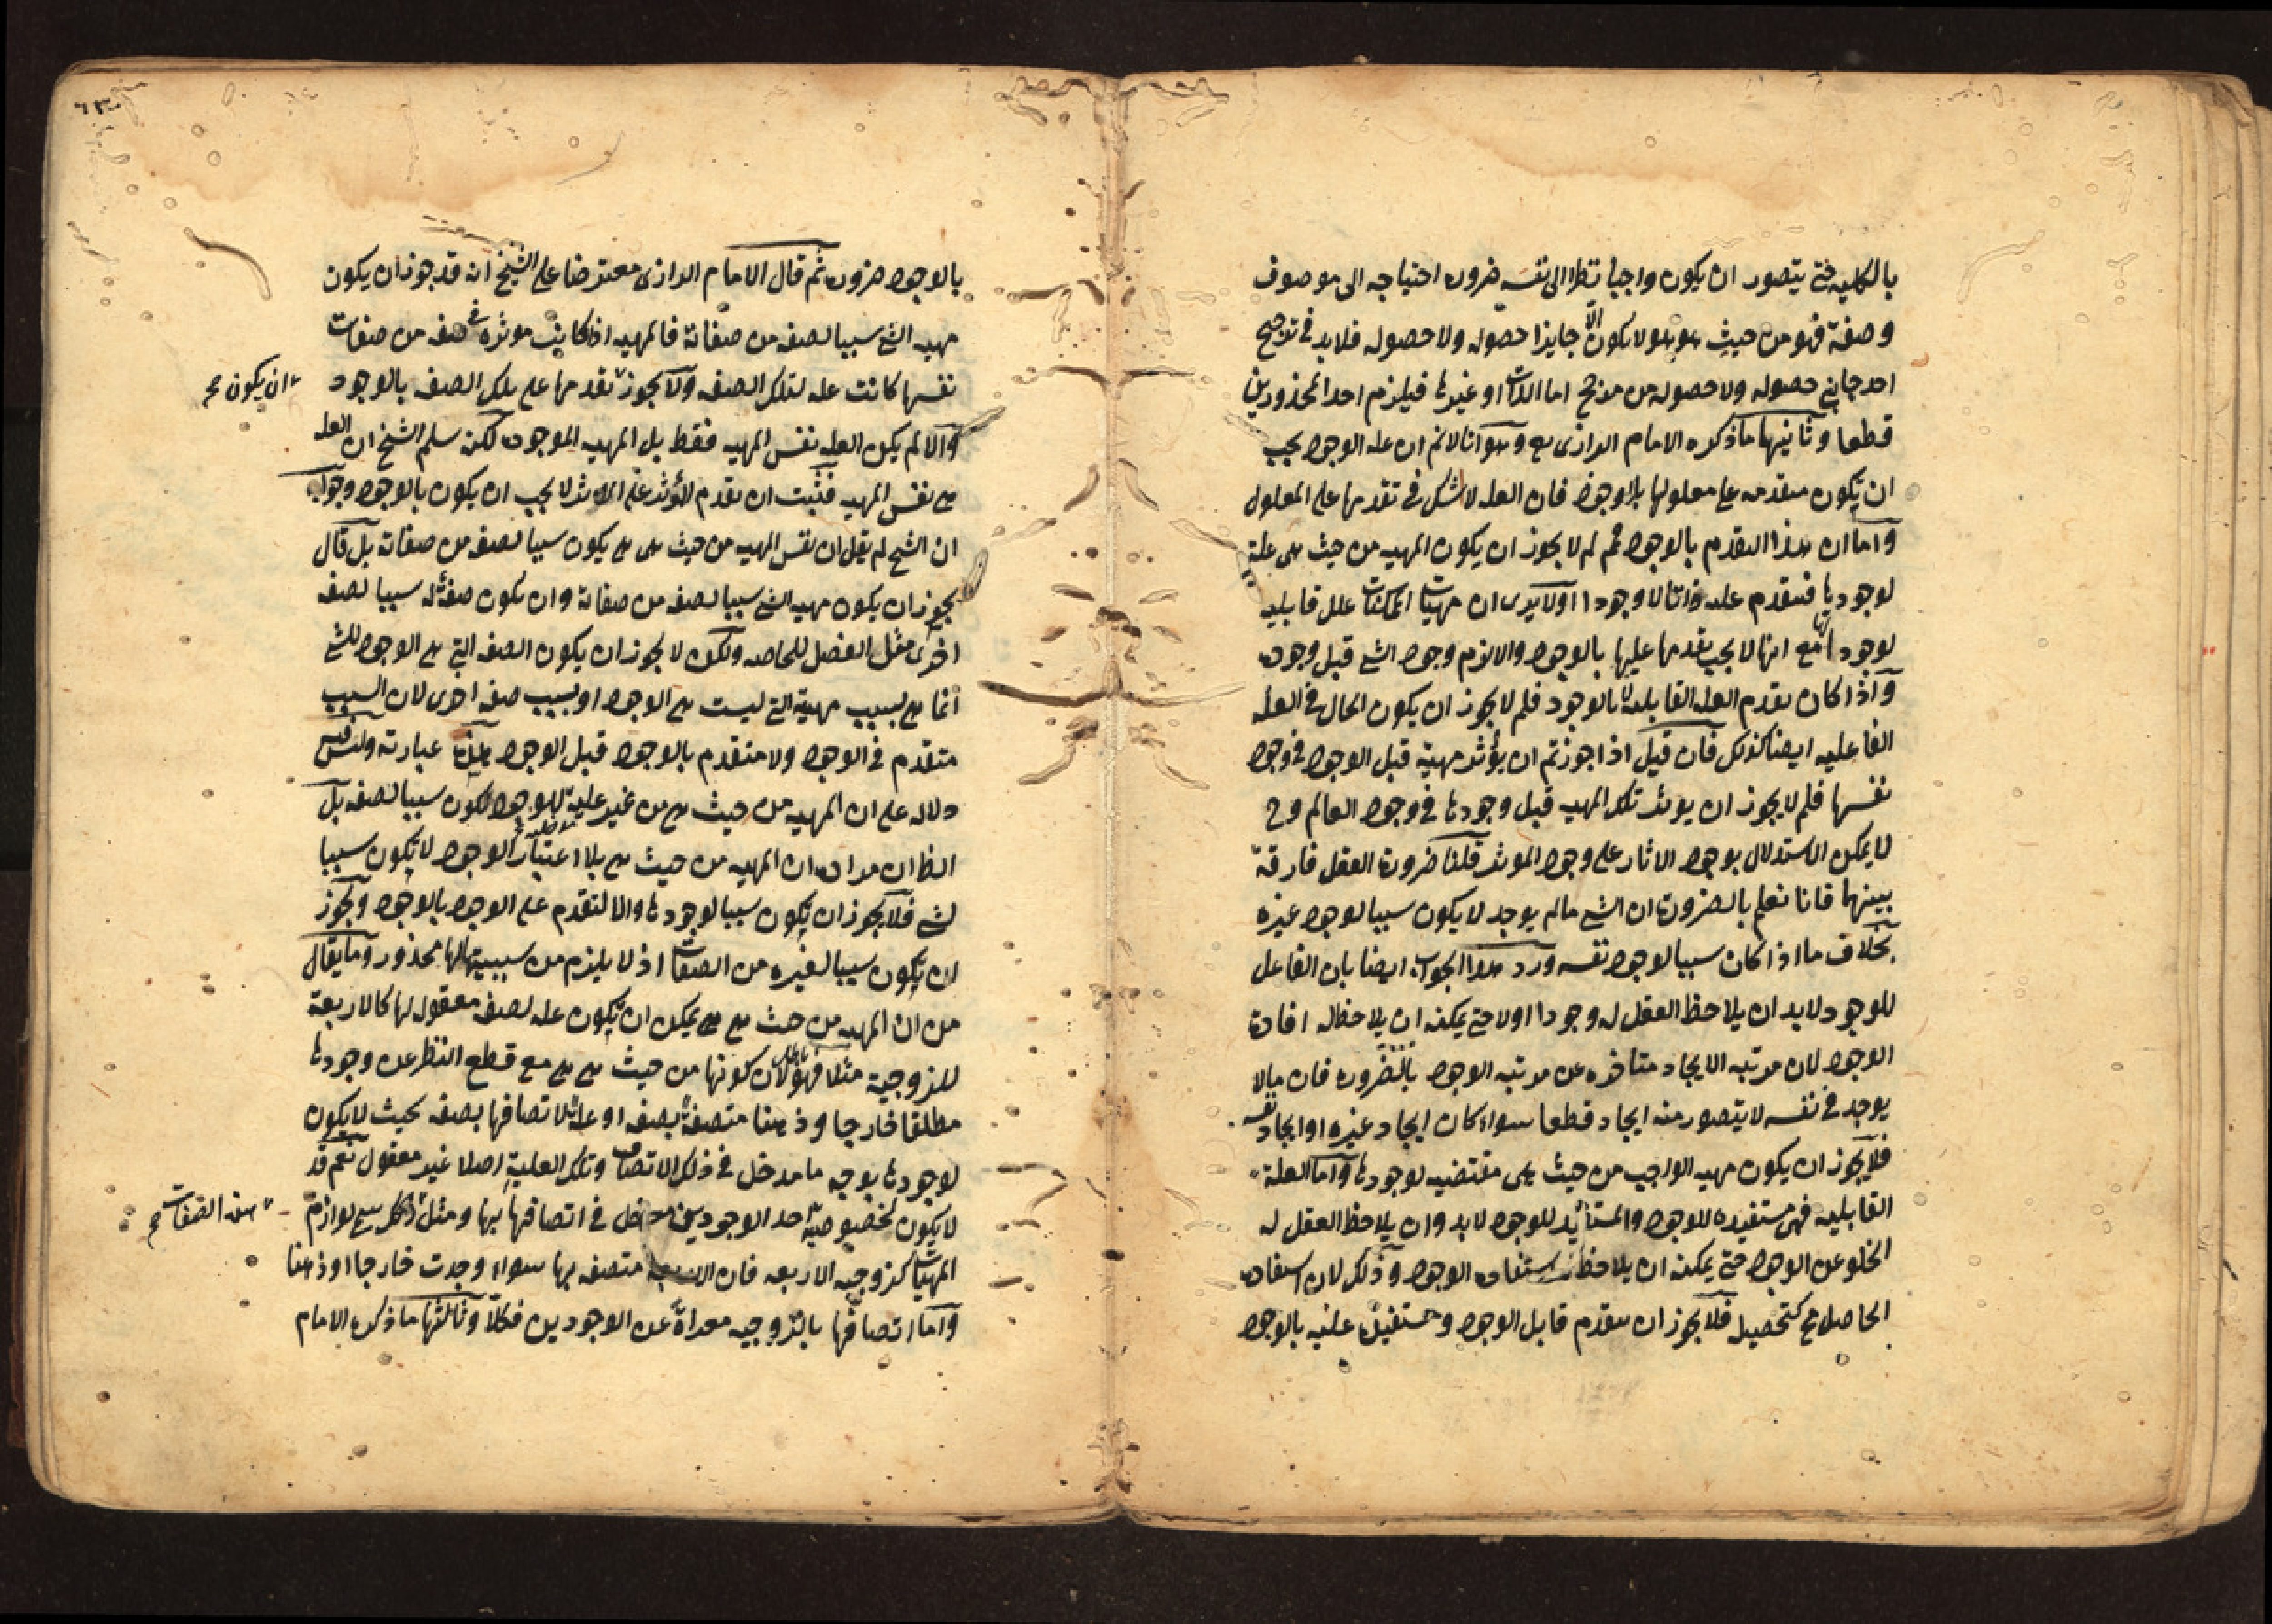 بالكليه حتى يتصور ان يكون واجبا نظرا الى نفسه ضروره احتياجه الى موصوف
وصفة فهو من حيث هو هو لا يكون الا جايزا حصوله ولا حصوله فلا بد فى ترجيح
احد جانبى حصوله ولا حصوله من مرجح اما الذات او غيرها فيلزم احد المحذورين
قطعا وثانيهما ما ذكره الامام الرازى وهو انا لا نم ان عله الوجود يجب
ان يكون متقدمه على معلولها بالوجود فان العله لا شك فى تقدمها على المعلول
واما ان هذا التقدم بالوجود فمم لم لا يجوز ان يكون المهيه من حيث هى علة
لوجودها فيتقدم عليه ذاتا لا وجودا اولا يرى ان مهيات الممكنات علل قابليه
لوجوداتها مع انها لا يجب تقدمها عليها بالوجود والا لزم وجود الشى قبل وجوده
واذا كان تقدم العله القابليه لا بالوجود فلم لا يجوز ان يكون الحال فى العله
الفاعليه ايضا كذلك فان قيل اذا جوزتم ان يؤثر مهية قبل الوجود فى وجود
نفسها فلم لا يجوز ان يوثر تلك المهيه قبل وجودها فى وجود العالم وح
لا يمكن الاستدلال بوجود الاثار على وجود الموثر قلنا ضرورة العقل فارقة
بينهما فانا نعلم بالضرورة ان الشى مالم يوجد لا يكون سببا لوجود غيره
بخلاف ما اذا كان سببا لوجود نفسه ورد هذا الجواب ايضا بان الفاعل
للوجود لا بد ان يلاحظ العقل له وجودا اولا حتى يمكنه ان يلاحظ له افادة
الوجود لان مرتبه الايجاد متاخره عن مرتبه الوجود بالضروره فان مالا
يوجد فى نفسه لا يتصور منه ايجاد قطعا سواء كان ايجاد غيره او ايجاد نفسه
فلا يجوز ان يكون مهيه الواجب من حيث هى مقتضيه لوجودها واما العلة
القابليه فهى مستفيده للوجود والمستفيد للوجود لا بد وان يلاحظ العقل له
الخلو عن الوجود حتى يمكنه ان يلاحظ استفاده الوجود وذلك لان استفاده
الحاصل مح كتحصيله فلا يجوز ان يتقدم قابل الوجود ومستفيده عليه بالوجود
بالوجود ضروره ثم قال الامام الرازى معترضا على الشيخ انه قد جوز ان يكون
مهيه الشى سببا لصفه من صفاته فالمهيه اذا كانت موثره فى صفه من صفات
نفسها كانت عله لتلك الصفه ولا يجوز تقدمها على تلك الصفه بالوجود
ان يكون صح
والا لم يكن العله نفس المهيه فقط بل المهيه الموجوده لكنه سلم الشيخ ان العله
هى نفس المهيه فثبت ان تقدم المؤثر على الاثر لا يجب ان يكون بالوجود وجوابه
ان الشيخ لم يقل ان نفس المهيه من حيث هى هى يكون سببا لصفه من صفاته بل قال
يجوز ان يكون مهيه الشى سببا لصفه من صفاته وان يكون صفة له سببا لصفه
اخرى مثل الفصل للخاصه ولكن لا يجوز ان يكون الصفه التى هى الوجود للشى
انما هى بسبب مهيته التى ليست هى الوجود او بسبب صفه اخرى لان السبب
متقدم فى الوجود ولا متقدم بالوجود قبل الوجود هذه عبارته وليس فيه
دلاله على ان المهيه من حيث هى من غير للوجود تكون سببا لصفه بل
الظ ان مراده ان المهيه من حيث هى بلا اعتبار الوجود لا يكون سببا
لشى فلا يجوز ان يكون سببا لوجودها والا لتقدم على الوجود بالوجود ويجوز
ان يكون سببا لغيره من الصفات اذ لا يلزم من سببيتها لها محذور وما يقال
من ان المهيه من حيث هى هى يمكن ان يكون عله لصفه معقوله لها كالاربعة
للزوجية مثلا فهو باطل لان كونها من حيث هى هى مع قطع النظر عن وجودها
مطلقا خارجا وذهنا متصفة بصفه او علة لاتصافها بصفه بحيث لا يكون
لوجودها بوجه ما مدخل فى ذلك الاتصاف وتلك العليه اصلا غير معقول نعم قد
لا يكون لخصوصية احد الوجودين مدخل فى اتصافها بها ومثل تسمى لوازم
هذه الصفات صح
المهيات كزوجيه الاربعه فان الاربعه متصفه بها سواء وجدت خارجا او ذهنا
واما اتصافها بالزوجيه معراة عن الوجودين فكلا وثالثها ما ذكره الامام